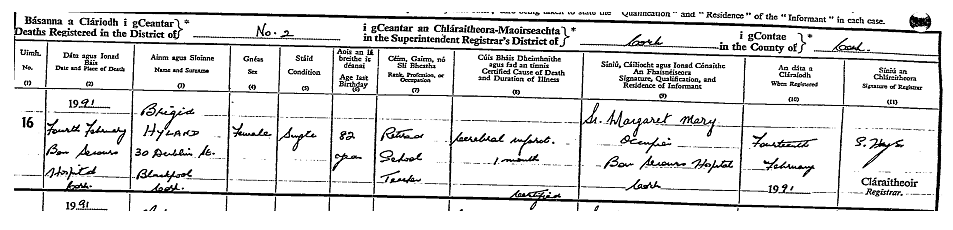 Básanna a Cláríodh i gCeantar
Deaths Registered in the District of } * No. 2
i gCeantar an Chláraitheora-Maoirseachta
in the Superintendent Registrar's District of } * Cork
i gContae
in the County of } * Cork
being taken to state the "Qualification" and "Residence" of the "Informant" in each case.
Uimh. No. (1)
Dáta agus Ionad Báis Date and Place of Death (2)
Ainm agus Sloinne Name and Surname (3)
Gnéas Sex (4)
Stáid Condition (5)
Aois an lá breithe is déanaí Age last Birthday (6)
Céim, Gairm, nó Slí Bheatha Rank, Profession, or Occupation (7)
Cúis Bháis Dheimhnithe agus fad an tinnis Certified Cause of Death and Duration of Illness (8)
Síniú, Cáilíocht agus Ionad Cónaithe An Fhaisnéiseora Signature, Qualification, and Residence of Informant (9)
An dáta a Cláraíodh When Registered (10)
Síniú an Chláraitheora Signature of Registrar (11)
16
1991
Fourth February
Bon Secours
Hospital
Cork.
Brigid
HYLAND
30 Dublin St.
Blackpool
Cork.
Female
Single
82
years
Retired
School
Teacher
Cerebral infarct.
1 month
Certified
Sr. Margaret Mary
Occupier
Bon Secours Hospital
Cork
Fourteenth
February
1991
S. Hays
Cláraitheoir
Registrar.
1991